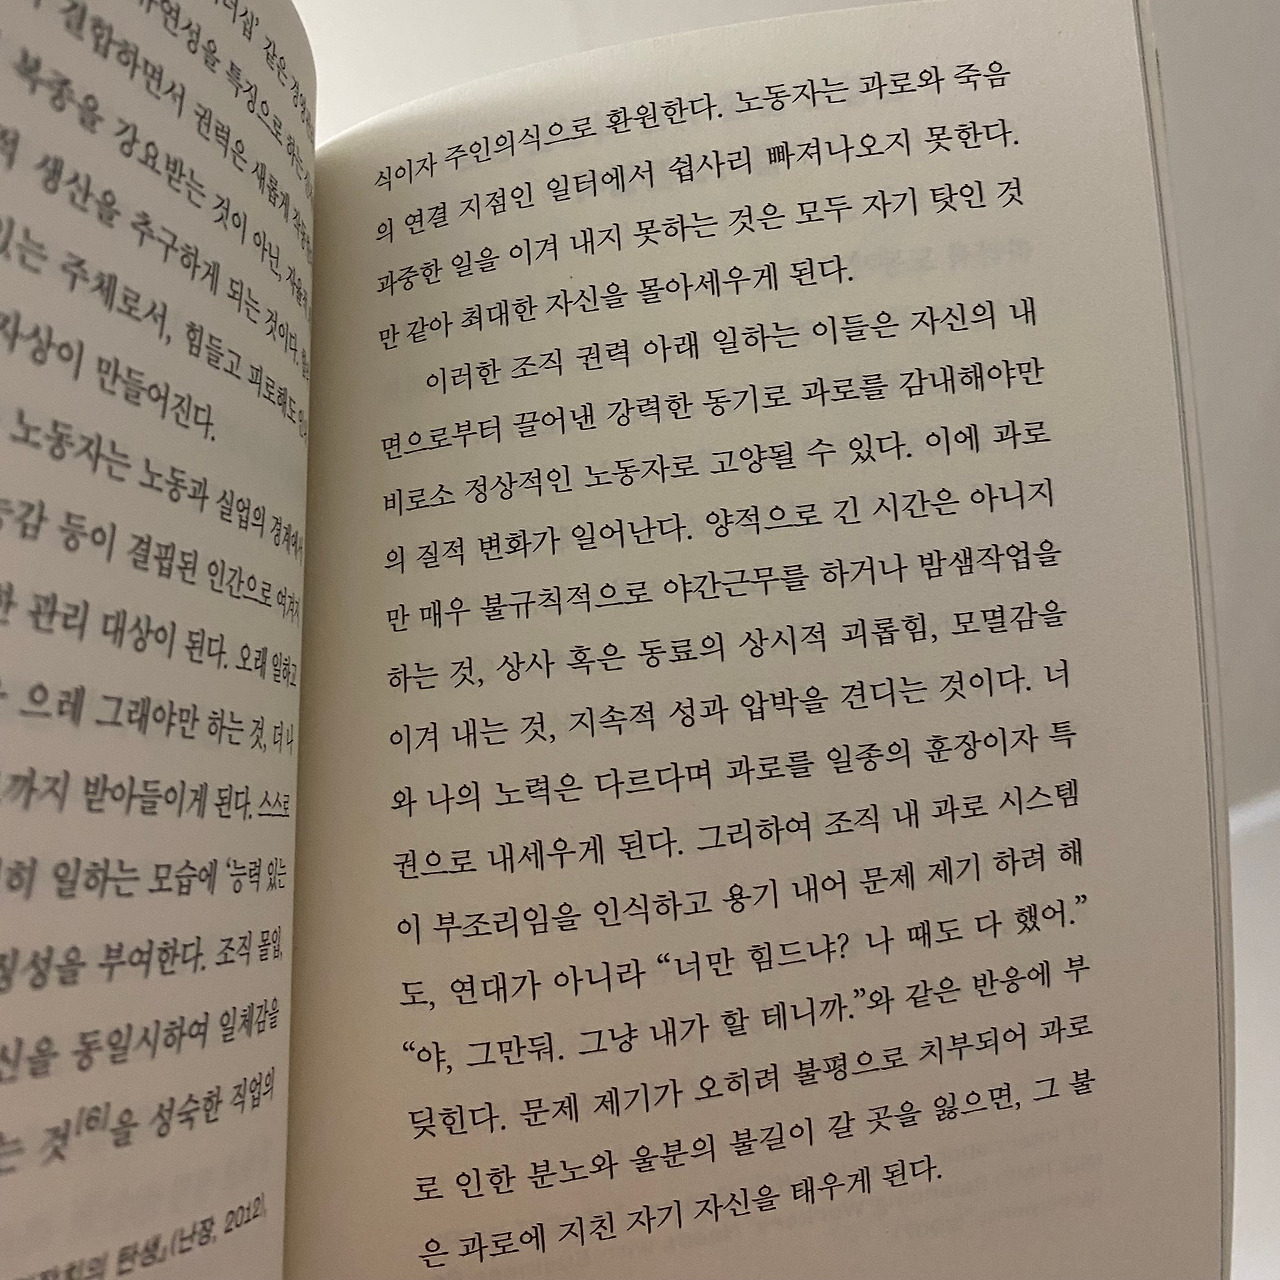 더십’ 같은 경영
유연성을 특징으로 하는
결합하면서 권력은 새롭게
복종을 강요받는 것이 아닌,
생산을 추구하게 되는 것이다.
있는 주체로서, 힘들고 피로해도
자상이 만들어진다.
노동자는 노동과 실업의 경계에서
등이 결핍된 인간으로 여겨지
관리 대상이 된다. 오래 일하고
으레 그래야만 하는 것, 더 나
까지 받아들이게 된다. 스스로
히 일하는 모습에 ‘능력 있는
징성을 부여한다. 조직 몰입,
신을 동일시하여 일체감을
는 것[6]을 성숙한 직업의
탄생』(난장, 2012),
식이자 주인의식으로 환원한다. 노동자는 과로와 죽음
의 연결 지점인 일터에서 쉽사리 빠져나오지 못한다.
과중한 일을 이겨 내지 못하는 것은 모두 자기 탓인 것
만 같아 최대한 자신을 몰아세우게 된다.
이러한 조직 권력 아래 일하는 이들은 자신의 내
면으로부터 끌어낸 강력한 동기로 과로를 감내해야만
비로소 정상적인 노동자로 고양될 수 있다. 이에 과로
의 질적 변화가 일어난다. 양적으로 긴 시간은 아니지
만 매우 불규칙적으로 야간근무를 하거나 밤샘작업을
하는 것, 상사 혹은 동료의 상시적 괴롭힘, 모멸감을
이겨 내는 것, 지속적 성과 압박을 견디는 것이다. 너
와 나의 노력은 다르다며 과로를 일종의 훈장이자 특
권으로 내세우게 된다. 그리하여 조직 내 과로 시스템
이 부조리임을 인식하고 용기 내어 문제 제기 하려 해
도, 연대가 아니라 “너만 힘드냐? 나 때도 다 했어.”
“야, 그만둬. 그냥 내가 할 테니까.”와 같은 반응에 부
딪힌다. 문제 제기가 오히려 불평으로 치부되어 과로
로 인한 분노와 울분의 불길이 갈 곳을 잃으면, 그 불
은 과로에 지친 자기 자신을 태우게 된다.